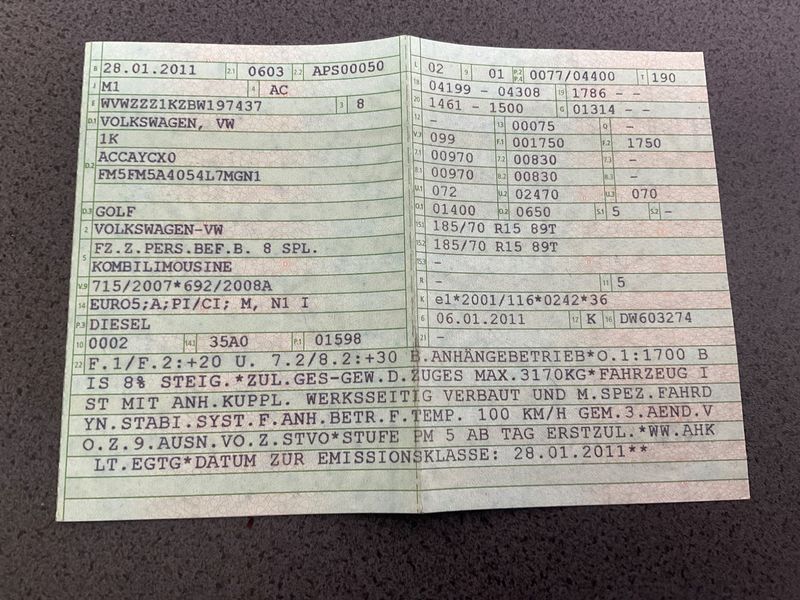 B 28.01.2011 2.1 0603 2.2 APS00050
J M1 4 AC
E WVWZZZ1KZBW197437 3 8
D.1 VOLKSWAGEN, VW
1K
D.2 ACCAYCX0
FM5FM5A4054L7MGN1
D.3 GOLF
2 VOLKSWAGEN-VW
5 FZ.Z.PERS.BEF.B. 8 SPL.
KOMBILIMOUSINE
V.9 715/2007*692/2008A
14 EURO5;A;PI/CI; M, N1 I
P.3 DIESEL
10 0002 14.1 35A0 P.1 01598
L 02 9 01 P.2 P.4 0077/04400 T 190
18 04199 - 04308 19 1786 - -
20 1461 - 1500 G 01314 - -
12 - 13 00075 Q -
V.7 099 F.1 001750 F.2 1750
7.1 00970 7.2 00830 7.3 -
8.1 00970 8.2 00830 8.3 -
U.1 072 U.2 02470 U.3 070
O.1 01400 O.2 0650 S.1 5 S.2 -
15.1 185/70 R15 89T
15.2 185/70 R15 89T
15.3 -
R - 11 5
K e1*2001/116*0242*36
6 06.01.2011 17 K 16 DW603274
21 -
22 F.1/F.2:+20 U. 7.2/8.2:+30 B.ANHÄNGEBETRIEB*O.1:1700 B
IS 8% STEIG.*ZUL.GES-GEW.D.ZUGES MAX.3170KG*FAHRZEUG I
ST MIT ANH.KUPPL. WERKSSEITIG VERBAUT UND M.SPEZ.FAHRD
YN.STABI.SYST.F.ANH.BETR.F.TEMP. 100 KM/H GEM.3.AEND.V
O.Z.9.AUSN.VO.Z.STVO*STUFE PM 5 AB TAG ERSTZUL.*WW.AHK
LT.EGTG*DATUM ZUR EMISSIONSKLASSE: 28.01.2011**